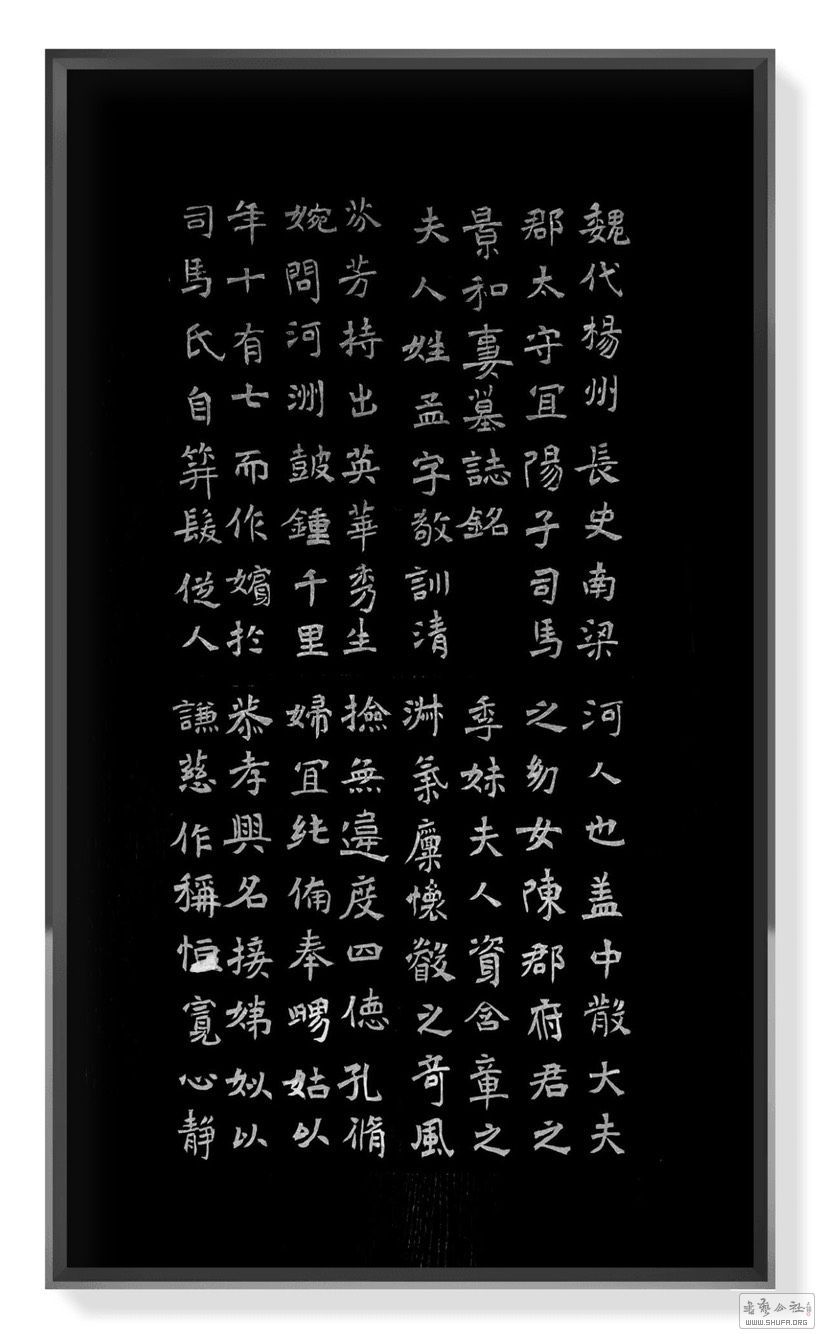 魏代楊州長史南梁
郡太守冝陽子司馬
景和妻墓誌銘
夫人姓孟字敬訓清
河人也盖中散大夫
之幼女陳郡府君之
季妹夫人資含章之
淋氣稟懷叡之奇風
芬芳特出英華秀生
婉問河洲鼓鍾千里
年十有七而作嬪於
司馬氏自笄髮従人
撿無違度四德孔脩
婦冝純俻奉舅姑以
恭孝興名接娣姒以
謙慈作稱恒寬心靜
書藝公社
WWW.SHUFA.ORG